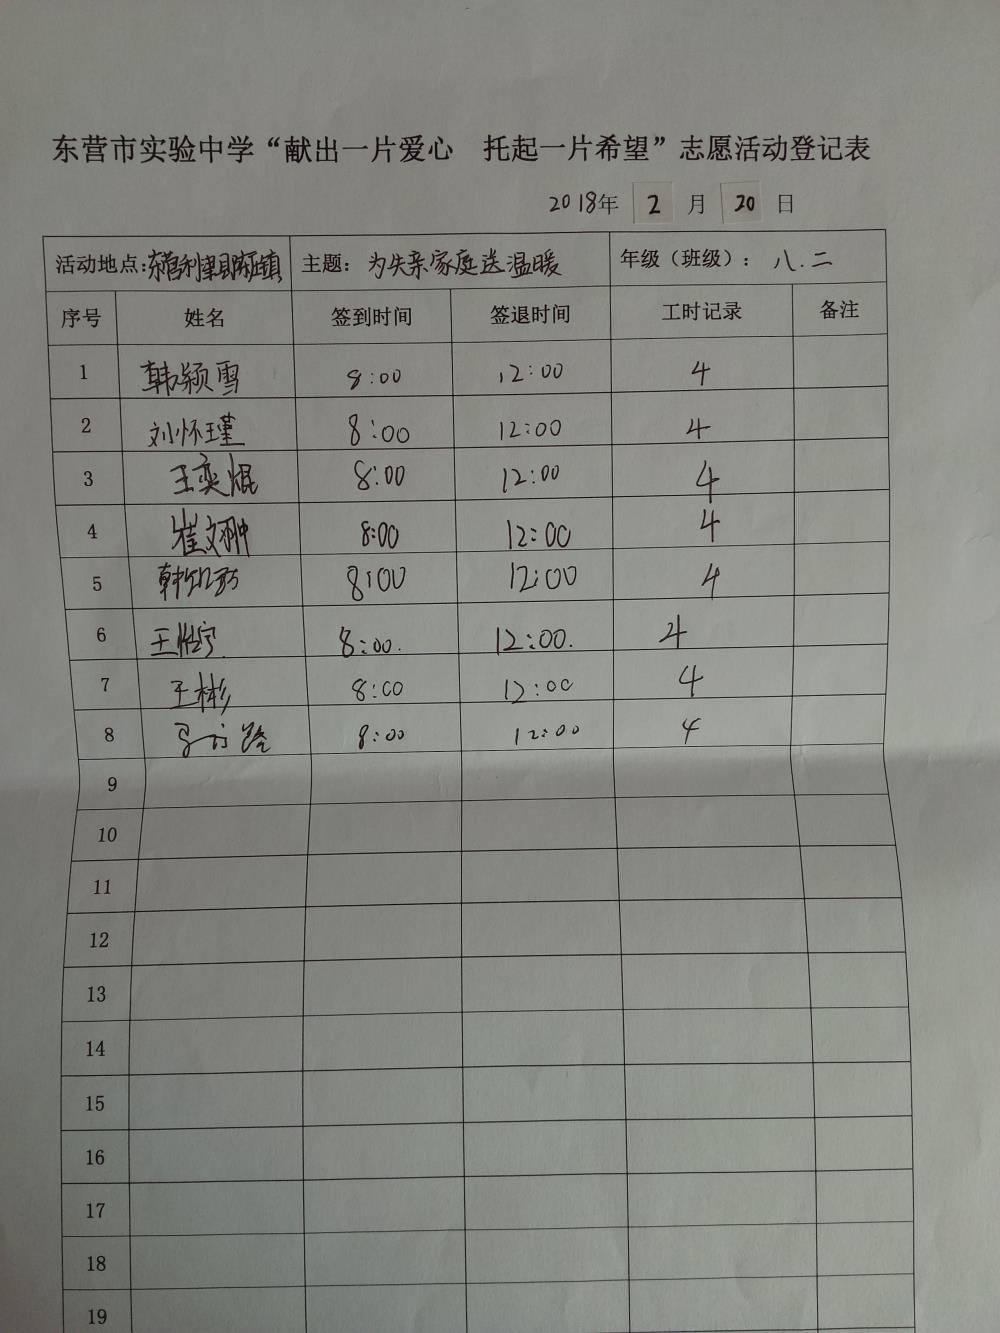 东营市实验中学“献出一片爱心　托起一片希望”志愿活动登记表
2018年 2 月 20 日
活动地点: 主题: 为失亲家庭送温暖 年级（班级）: 八.二
序号 姓名 签到时间 签退时间 工时记录 备注
1 韩颖雪 8:00 12:00 4
2 刘怀瑾 8:00 12:00 4
3 王奕焜 8:00 12:00 4
4 崔文翀 8:00 12:00 4
5 8:00 12:00 4
6 王怡宁 8:00. 12:00. 4
7 王彬 8:00 12:00 4
8 8:00 12:00 4
9
10
11
12
13
14
15
16
17
18
19